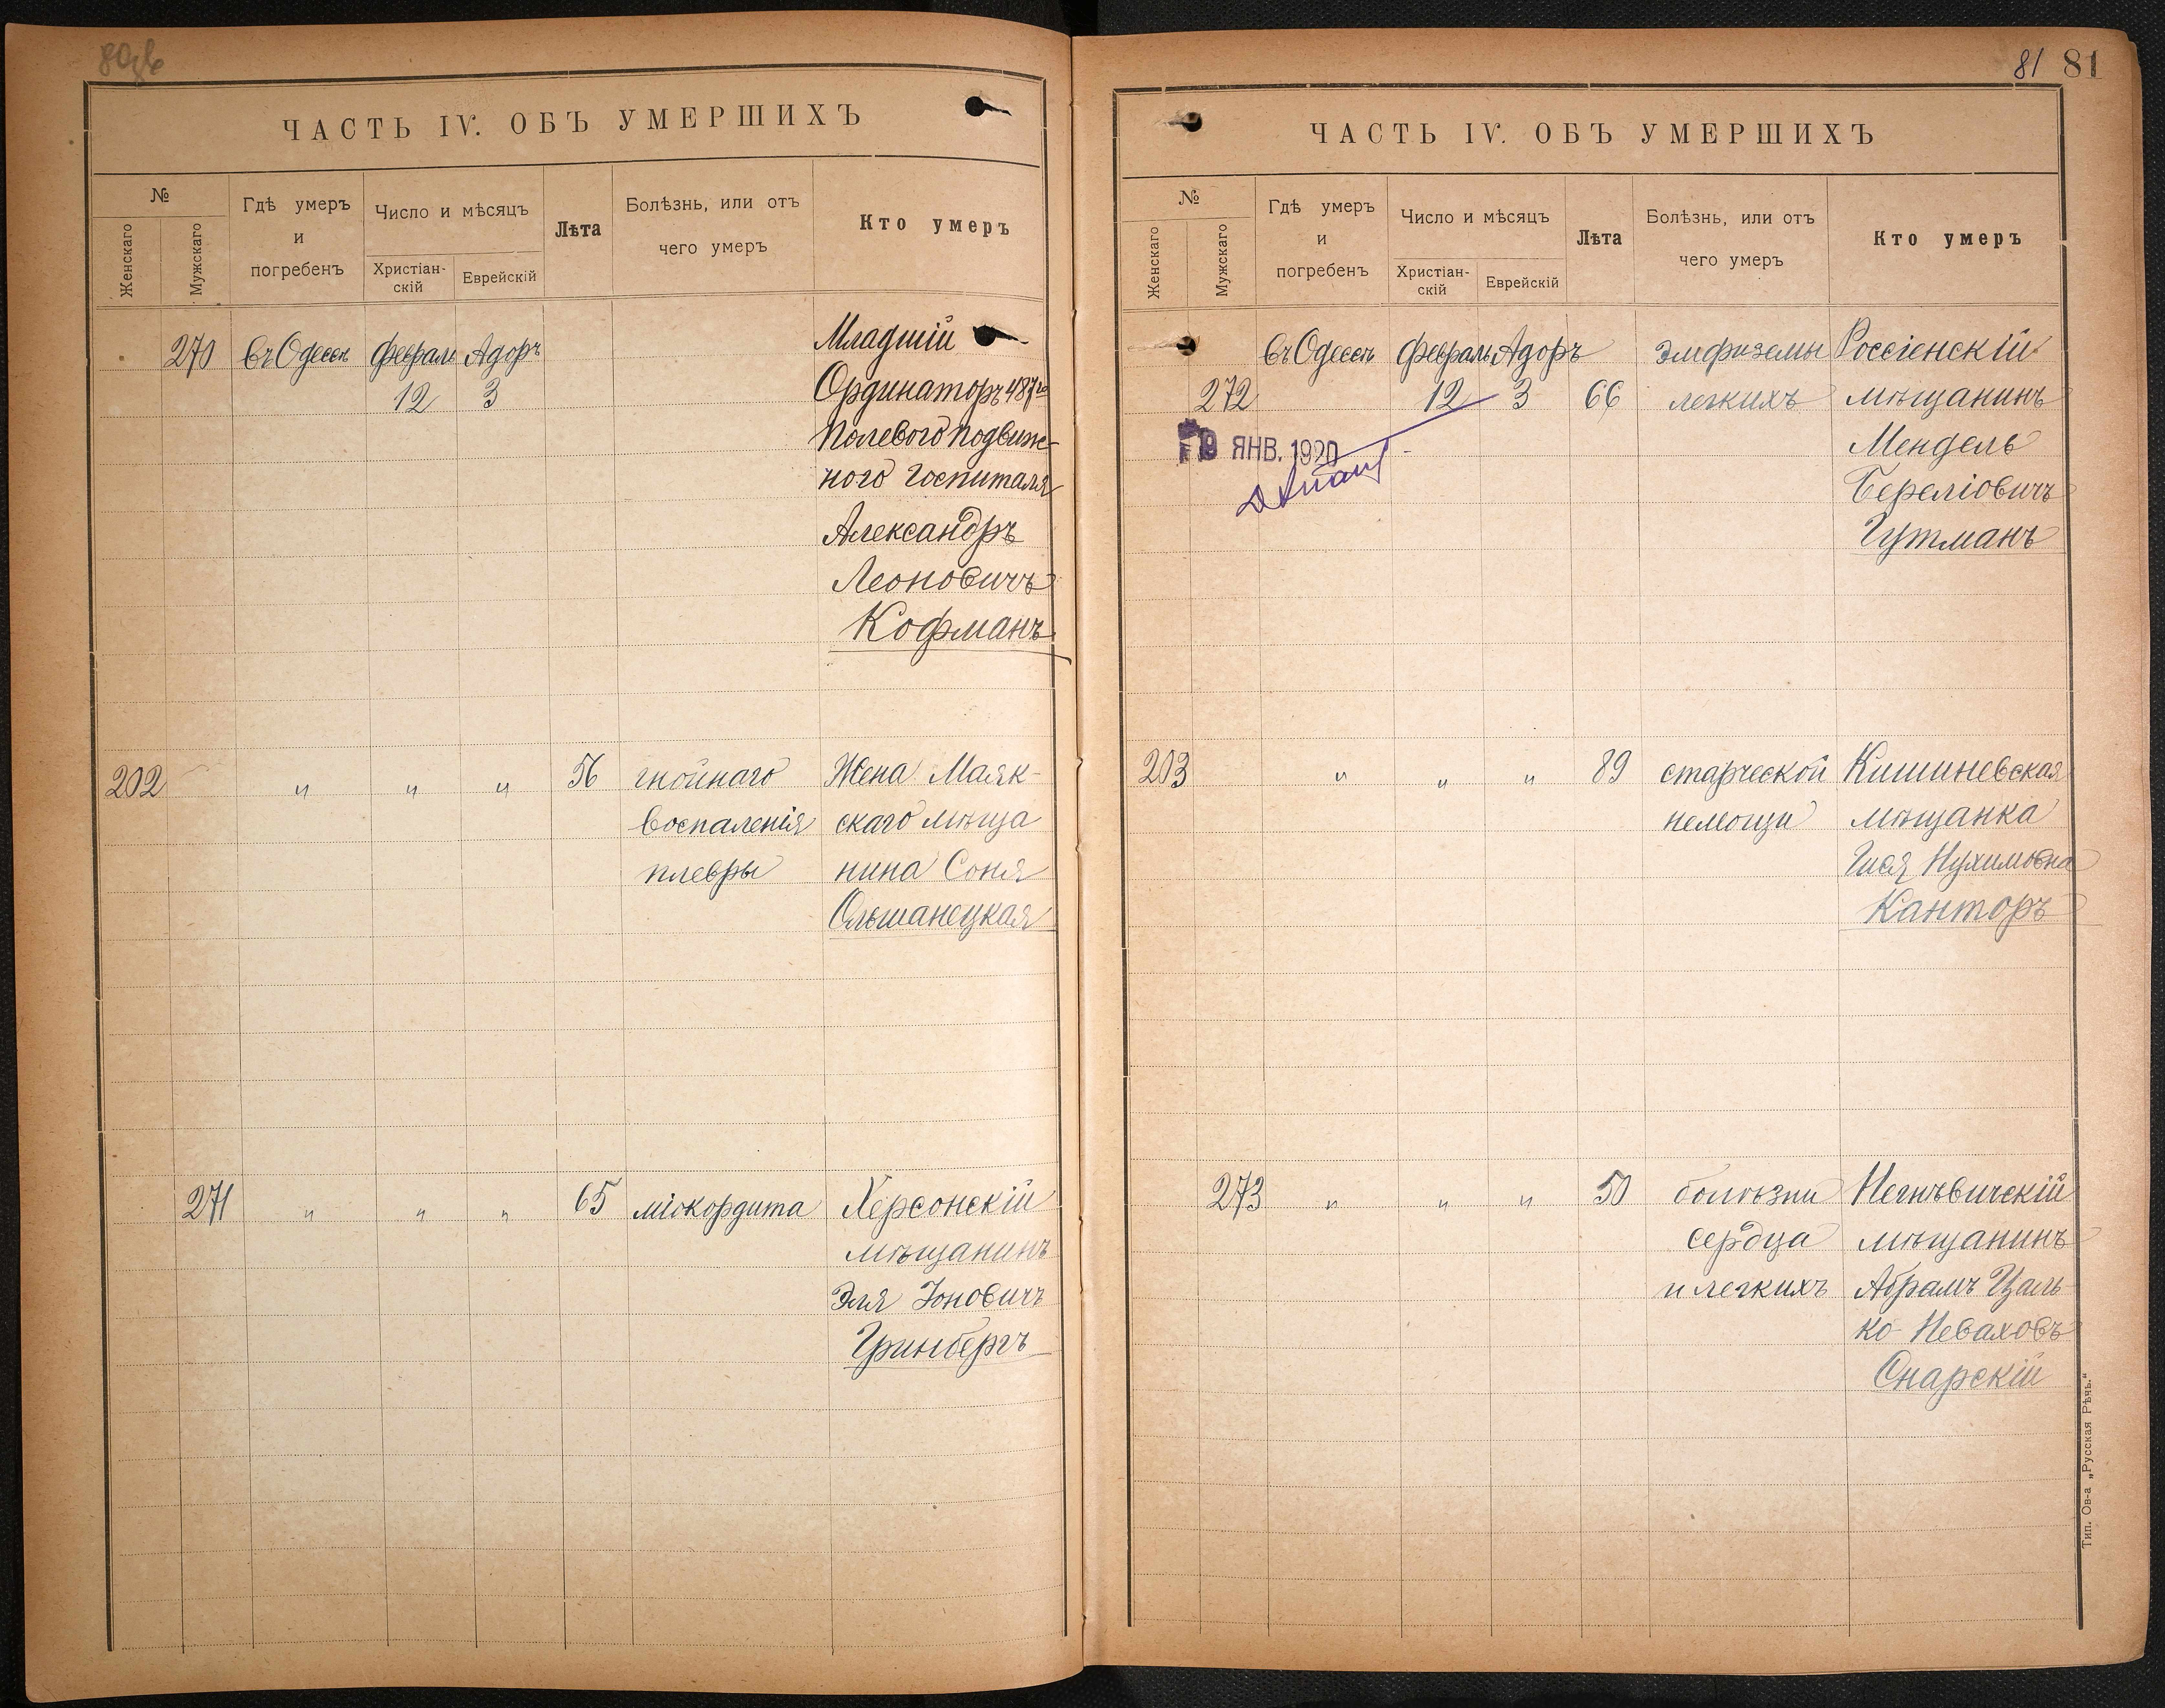 80об
ЧАСТЬ IV. ОБЪ УМЕРШИХЪ
№
Женскаго
Мужскаго
Гдѣ умеръ
и
погребенъ
Число и мѣсяцъ
Христіан-
скій
Еврейскій
Лѣта
Болѣзнь, или отъ
чего умеръ
Кто умеръ
270 въ Одессѣ февраль Адоръ Младшій
12 3 Ординаторъ 487го
Полевого подвиж-
ного Госпиталя
Александръ
Леоновичъ
Кофманъ
202 " " " 56 гнойнаго Жена Маяк-
воспаленія скаго мѣща
плевры нина Соня
Ольшанецкая
271 " " " 65 міокордита Херсонскій
мѣщанинъ
Эля Іоновичъ
Гринбергъ
81 81
ЧАСТЬ IV. ОБЪ УМЕРШИХЪ
№
Женскаго
Мужскаго
Гдѣ умеръ
и
погребенъ
Число и мѣсяцъ
Христіан-
скій
Еврейскій
Лѣта
Болѣзнь, или отъ
чего умеръ
Кто умеръ
въ Одессѣ февраль Адоръ эмфиземы Россіенскій
272 12 3 66 легкихъ мѣщанинъ
ЯНВ. 1920 Мендель
Береліовичъ
Гутманъ
203 " " " 89 старческой Кишиневская
немощи мѣщанка
Нухимовна
Канторъ
273 " " " 50 болѣзни Негнѣвичскій
сердца мѣщанинъ
и легкихъ Абрамъ Цаль
ко-Неваховъ
Снарскій
Тип. Ов-а „Русская Рѣчь."